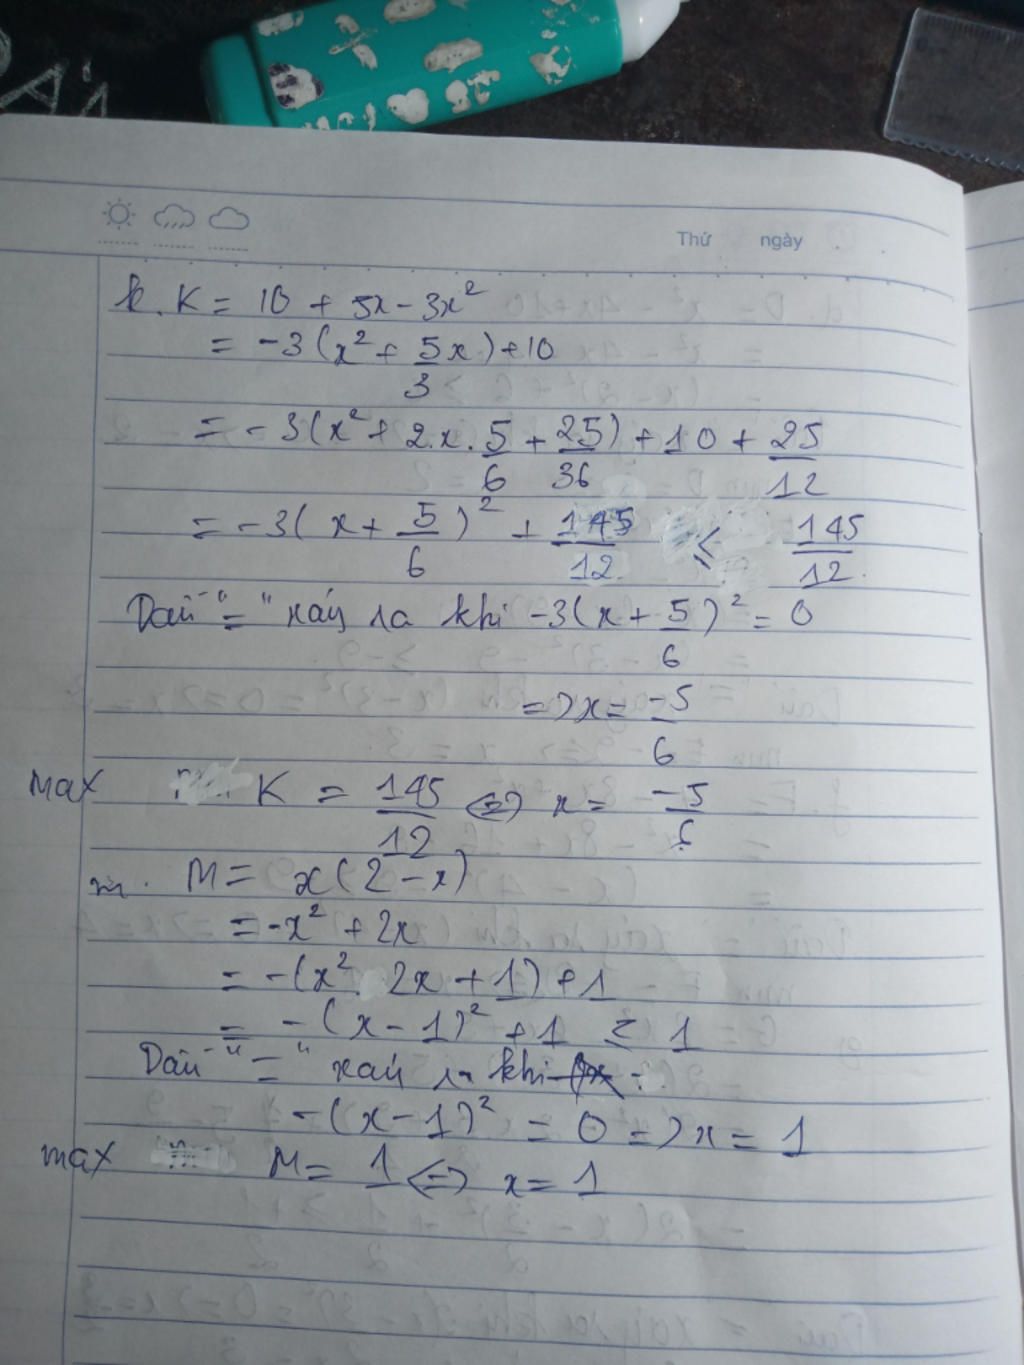 Thứ ngày
k. K = 10 + 5x - 3x²
= -3(x² + 5x/3) + 10
= -3(x² + 2.x.5/6 + 25/36) + 10 + 25/12
= -3(x + 5/6)² + 145/12 ≤ 145/12
Dấu "=" xảy ra khi -3(x + 5/6)² = 0
=> x = -5/6
max K = 145/12 <=> x = -5/6
m. M = x(2-x)
= -x² + 2x
= -(x² 2x + 1) + 1
= -(x-1)² + 1 ≤ 1
Dấu "=" xảy ra khi
-(x-1)² = 0 => x = 1
max M = 1 <=> x = 1